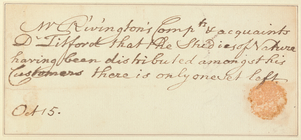 Mr Rivington's Compts & acquaints
Dr Titford that the Studies of Nature
having been distributed amongst his
Customers there is only one set left
Oct 15.